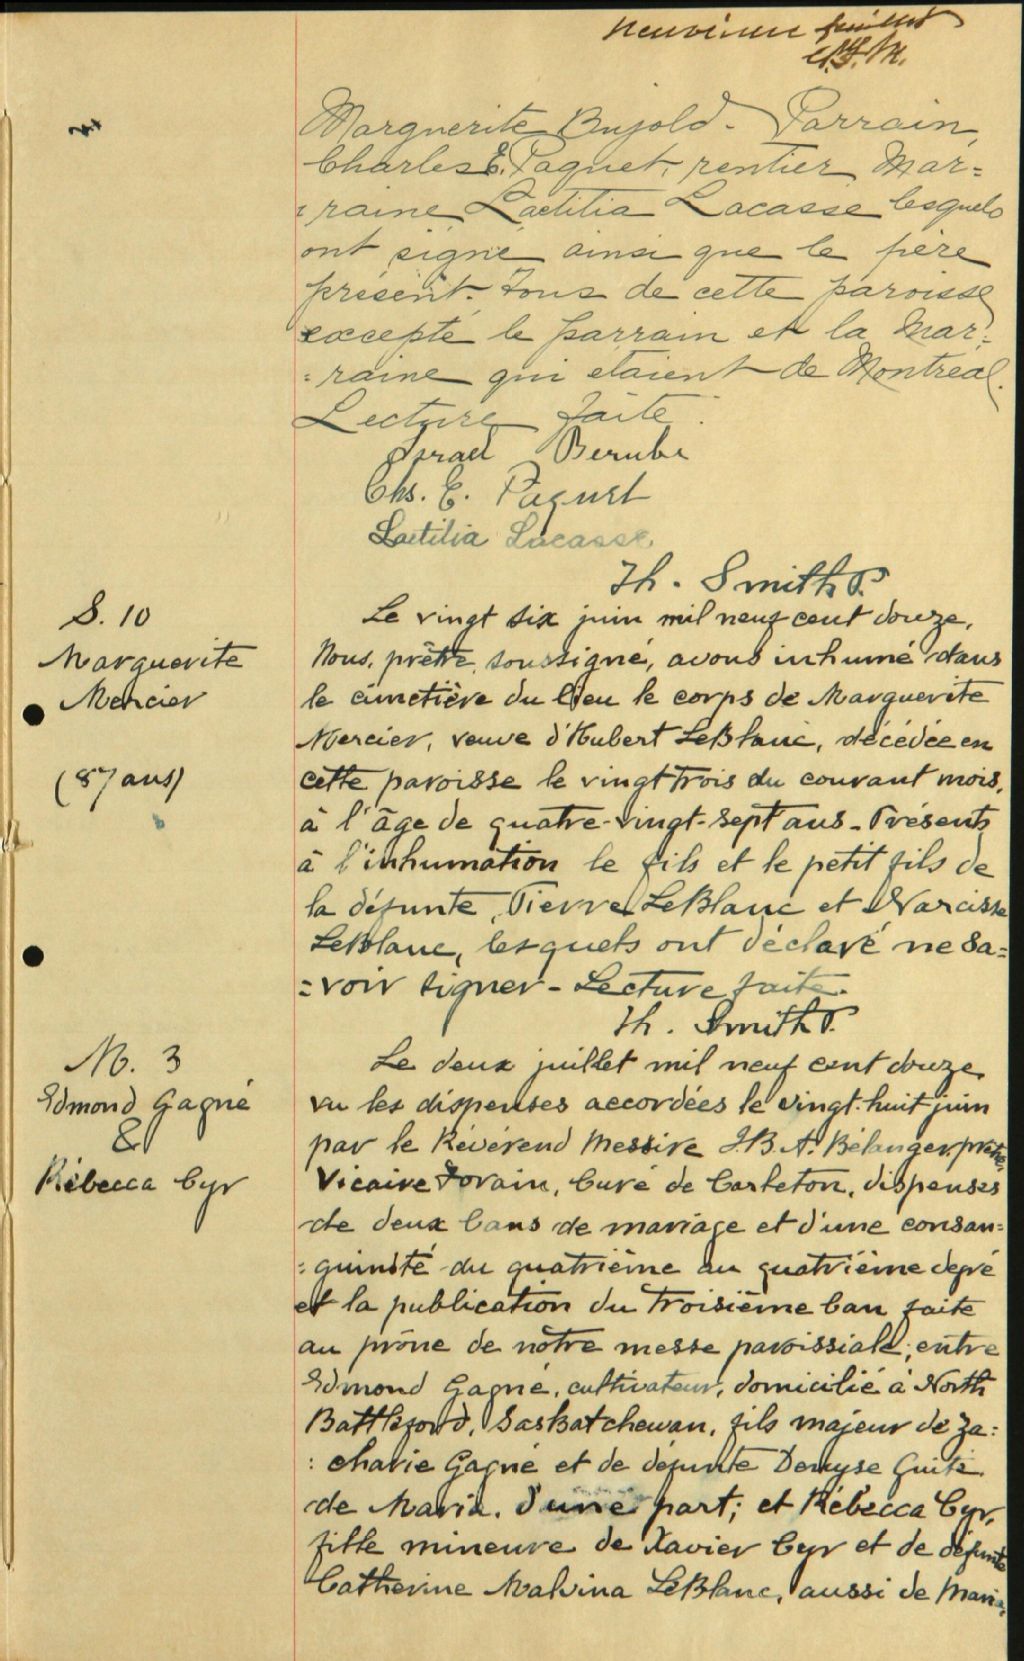 Neuvième feuillet
Marguerite Bujold - Parrain,
Charles E. Paquet, rentier Mar=
=raine Laetitia Lacasse lesquels
ont signé ainsi que le père
présent. Tous de cette paroisse
excepté le parrain et la Mar=
=raine qui etaient de Montréal.
Lecture faite.
Israel Berube
Chs. E. Paquet
Laetitia Lacasse
Th. Smith P.
S. 10
Marguerite
Mercier
(87 ans)
Le vingt six juin mil neuf cent douze,
Nous, prêtre, soussigné, avons inhumé dans
le cimetière du lieu le corps de Marguerite
Mercier, veuve d'Hubert LeBlanc, décédée en
cette paroisse le vingt trois du courant mois,
à l'âge de quatre-vingt-sept ans - Présents
à l'inhumation le fils et le petit fils de
la défunte, Pierre LeBlanc et Narcisse
LeBlanc, lesquels ont déclaré ne sa=
=voir signer - Lecture faite.
Th. Smith P.
M. 3
Edmond Gagné
&
Rébecca Cyr
Le deux juillet mil neuf cent douze
vu les dispenses accordées le vingt-huit juin
par le Révérend Messire J.B.A. Bélanger, prêtre,
Vicaire Forain, Curé de Carleton, dispenses
de deux bans de mariage et d'une consan=
=guinité du quatrième au quatrième degré
et la publication du troisième ban faite
au prône de nôtre messe paroissiale; entre
Edmond Gagné, cultivateur, domicilié à North
Battleford, Saskatchewan, fils majeur de Za=
=charie Gagné et de défunte Denyse Guité
de Maria, d'une part; et Rébecca Cyr,
fille mineure de Xavier Cyr et de défunte
Catherine Malvina LeBlanc, aussi de Maria,